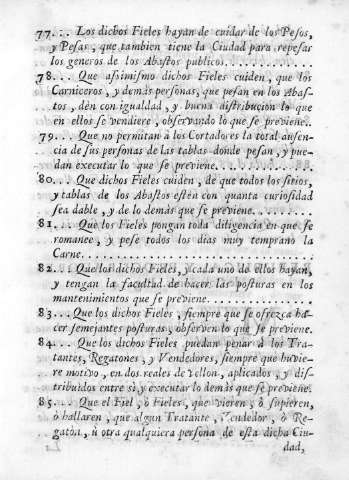 77.:. Los dichos Fieles hayan de cuidar de los Pesos,
y Pesas, que tambien tiene la Ciudad para repesar
los generos de los Abastos publicos..............
78... Que assimismo dichos Fieles cuiden, que los
Carniceros, y demás personas, que pesan en los Abas-
tos, dèn con igualdad, y buena distribucion lo que
en ellos se vendiere, observando lo que se previene..
79... Que no permitan à los Cortadores la total ausen-
cia de sus personas de las tablas donde pesan, y pue-
dan executar lo que se previene.................
80... Que dichos Fieles cuiden, de que todos los sitios,
y tablas de los Abastos estèn con quanta curiosidad
sea dable, y de lo demás que se previene..........
81... Que los Fieles pongan toda diligencia en que se
romanee, y pese todos los dias muy temprano la
Carne....................................
82... Que los dichos Fieles, y cada uno de ellos hayan,
y tengan la facultad de hacer las posturas en los
mantenimientos que se previene..................
83... Que los dichos Fieles, siempre que se ofrezca ha-
cer semejantes posturas, observen lo que se previene.
84... Que los dichos Fieles puedan penar à los Tra-
tantes, Regatones, y Vendedores, siempre que huvie-
re motivo, en dos reales de vellon, aplicados, y dis-
tribuidos entre sì y executar lo demàs que se previene.
85... Que el Fiel, ò Fieles, que vieren, ò supieren,
ò hallaren, que algun Tratante, Vendedor, ò Re-
gatòn, ù otra qualquiera persona de esta dicha Ciu-
dad,